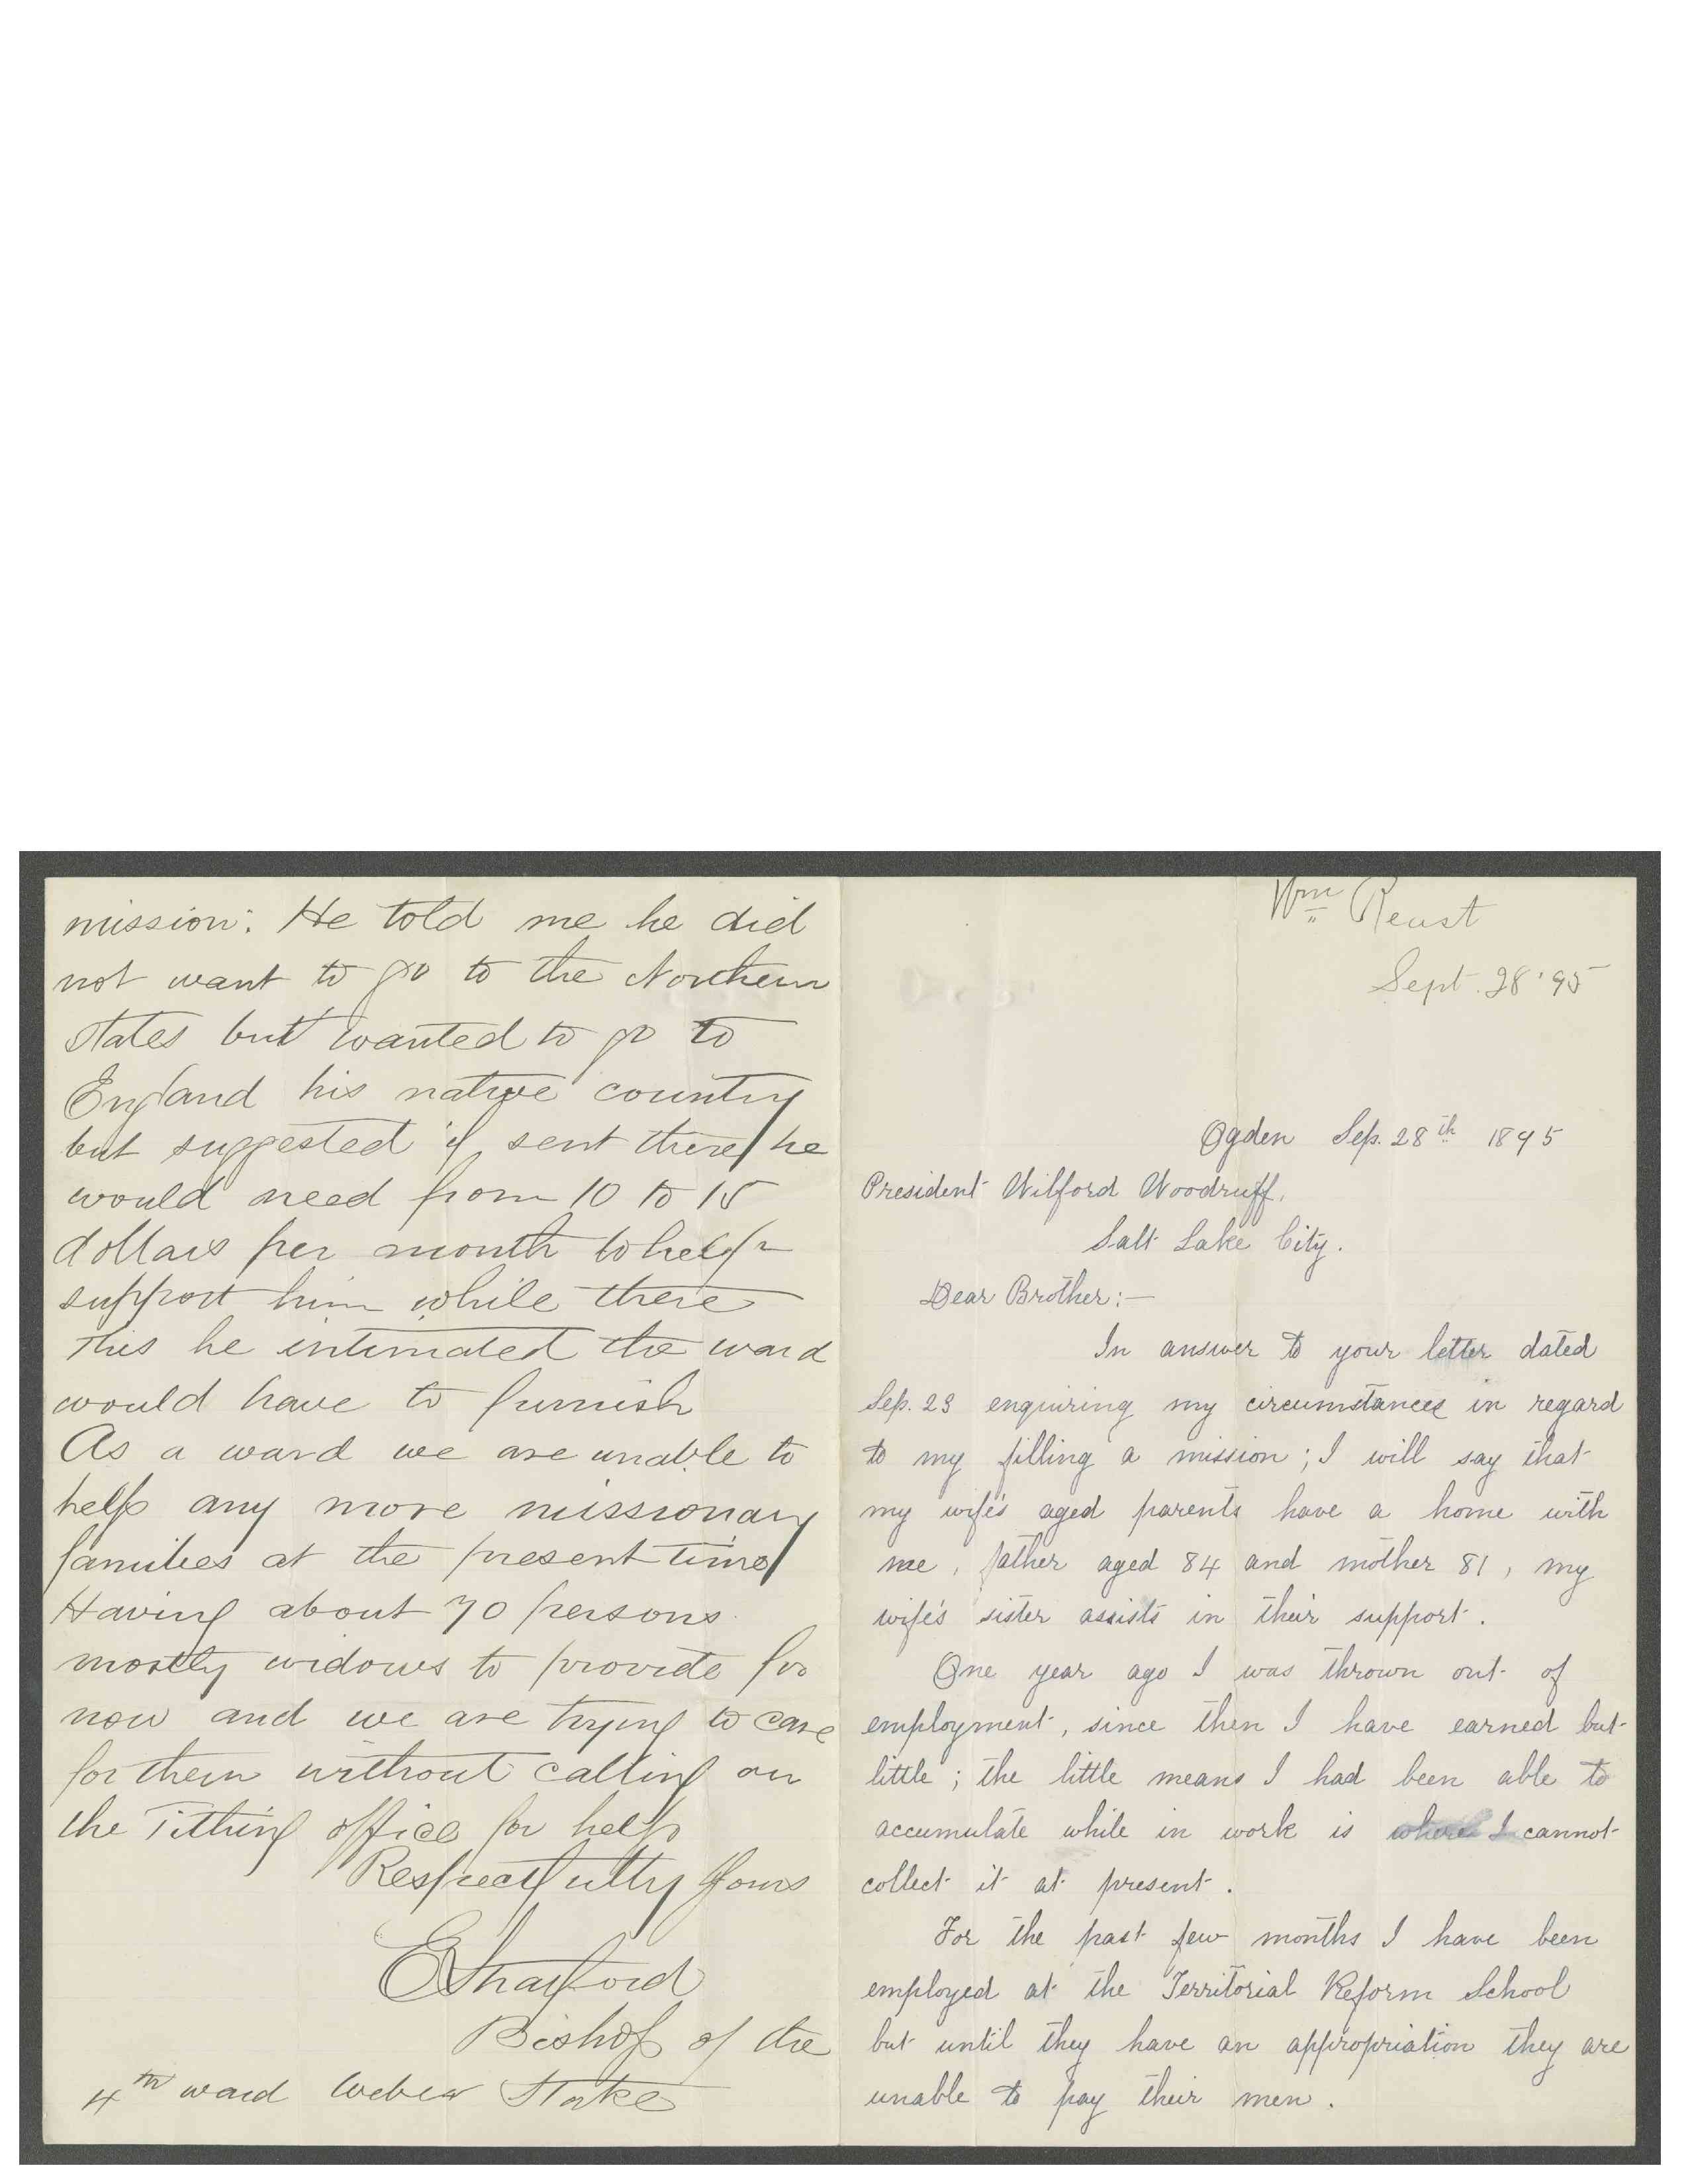 mission: He told me he did
not want to go to the Northern
States but wanted to go to
England his native country
but suggested if sent there he
would need from 10 to 15
dollars per month to help
support him while there
This he intimated the ward
would have to furnish
As a ward we are unable to
help any more missionary
families at the present time
Having about 70 persons
mostly widows to provide for
now and we are trying to care
for them without calling on
the Tithing office for help
Respectfully Yours
E Stratford
Bishop of the
4th ward Weber Stake
Wm Reast
Sept. 28 '95
Ogden Sep. 28th 1895
President Wilford Woodruff,
Salt Lake City.
Dear Brother:—
In answer to your letter dated
Sep. 23 enquiring my circumstances in regard
to my filling a mission; I will say that
my wife's aged parents have a home with
me, father aged 84 and mother 81, my
wife's sister assists in their support.
One year ago I was thrown out of
employment, since then I have earned but
little; the little means I had been able to
accumulate while in work is where I cannot
collect it at present.
For the past few months I have been
employed at the Territorial Reform School
but until they have an appropriation they are
unable to pay their men.